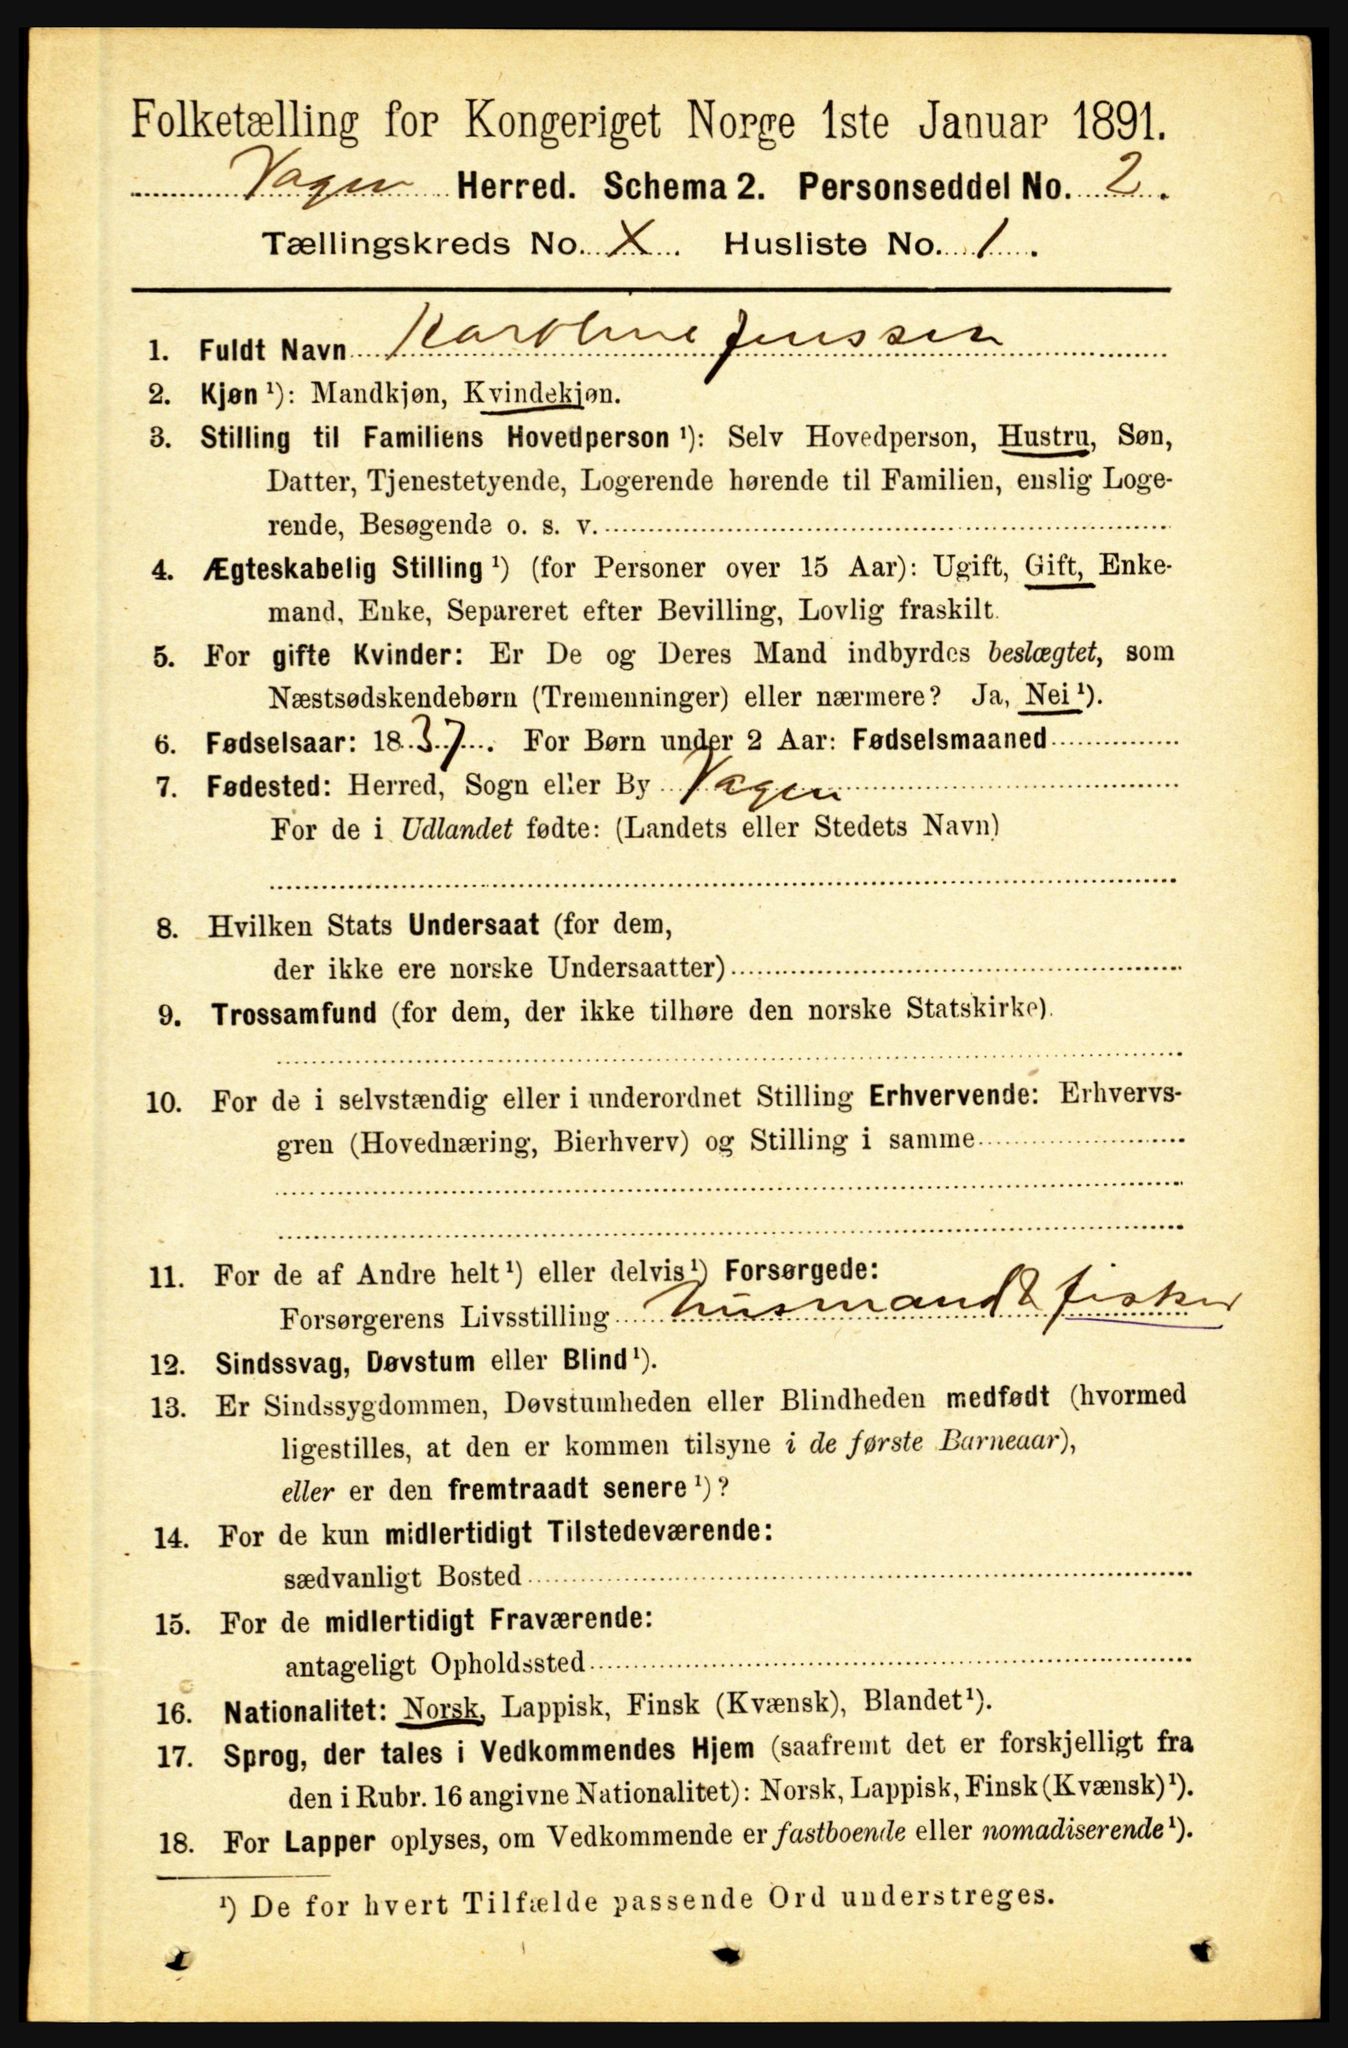 Folketælling for Kongeriget Norge 1ste Januar 1891.
Vagen Herred. Schema 2. Personseddel No. 2.
Tællingskreds No. X. Husliste No. 1.
1. Fuldt Navn Karoline Jenssen
2. Kjøn ¹): Mandkjøn, Kvindekjøn.
3. Stilling til Familiens Hovedperson ¹): Selv Hovedperson, Hustru, Søn,
Datter, Tjenestetyende, Logerende hørende til Familien, enslig Loge-
rende, Besøgende o. s. v.
4. Ægteskabelig Stilling ¹) (for Personer over 15 Aar): Ugift, Gift, Enke-
mand, Enke, Separeret efter Bevilling, Lovlig fraskilt.
5. For gifte Kvinder: Er De og Deres Mand indbyrdes beslægtet, som
Næstsødskendebørn (Tremenninger) eller nærmere? Ja, Nei ¹).
6. Fødselsaar: 1837. For Børn under 2 Aar: Fødselsmaaned
7. Fødested: Herred, Sogn eller By Vagen
For de i Udlandet fødte: (Landets eller Stedets Navn)
8. Hvilken Stats Undersaat (for dem,
der ikke ere norske Undersaatter)
9. Trossamfund (for dem, der ikke tilhøre den norske Statskirke).
10. For de i selvstændig eller i underordnet Stilling Erhvervende: Erhvervs-
gren (Hovednæring, Bierhverv) og Stilling i samme
11. For de af Andre helt ¹) eller delvis ¹) Forsørgede:
Forsørgerens Livsstilling husmand & fisker
12. Sindssvag, Døvstum eller Blind ¹).
13. Er Sindssygdommen, Døvstumheden eller Blindheden medfødt (hvormed
ligestilles, at den er kommen tilsyne i de første Barneaar),
eller er den fremtraadt senere ¹)?
14. For de kun midlertidigt Tilstedeværende:
sædvanligt Bosted
15. For de midlertidigt Fraværende:
antageligt Opholdssted
16. Nationalitet: Norsk, Lappisk, Finsk (Kvænsk), Blandet ¹).
17. Sprog, der tales i Vedkommendes Hjem (saafremt det er forskjelligt fra
den i Rubr. 16 angivne Nationalitet): Norsk, Lappisk, Finsk (Kvænsk) ¹).
18. For Lapper oplyses, om Vedkommende er fastboende eller nomadiserende ¹).
¹) De for hvert Tilfælde passende Ord understreges.